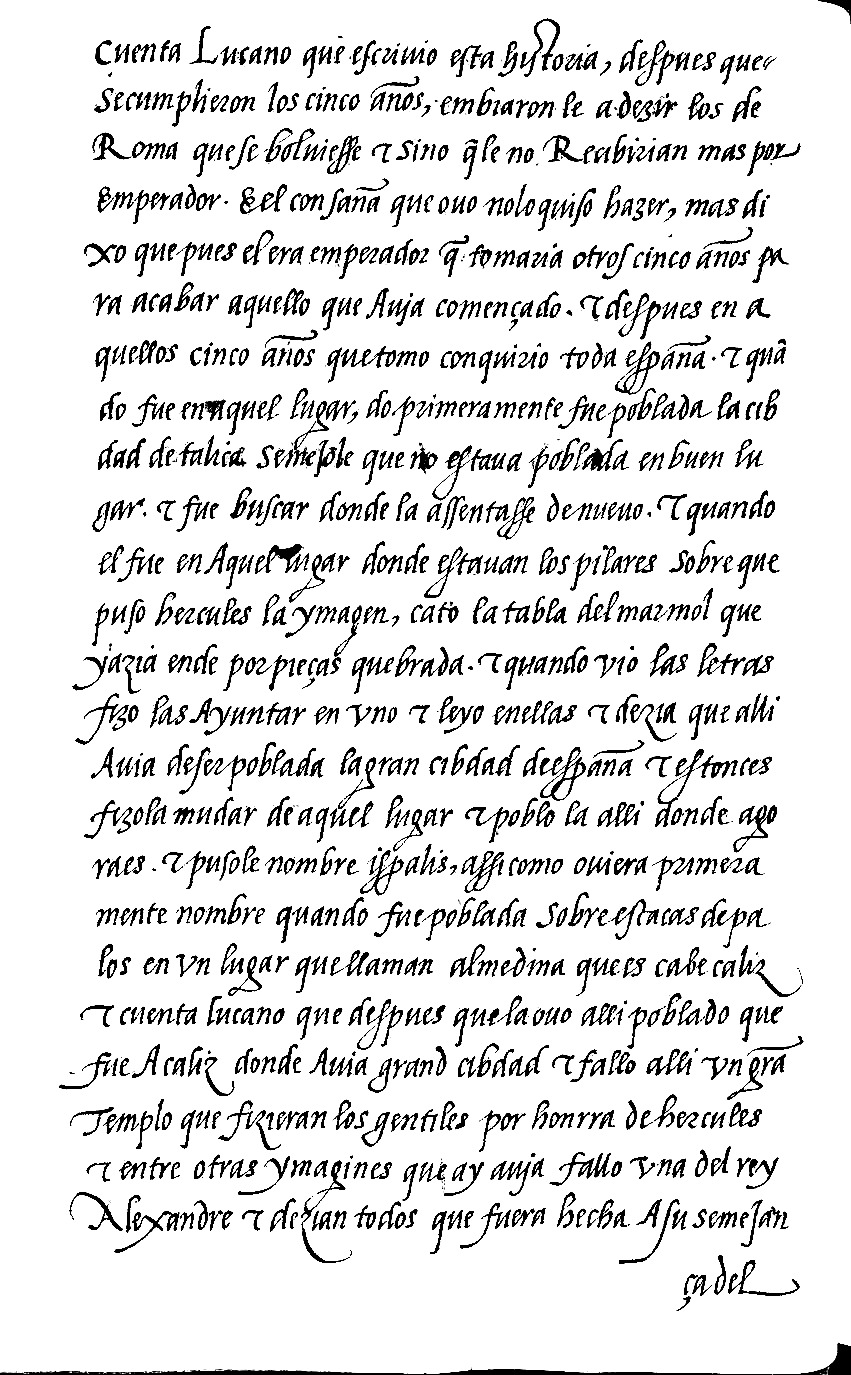 Cuenta Lucano que escrivio esta historia, despues que
Se cumplieron los cinco años, embiaron le a dezir los de
Roma que se bolviesse τ sino q̃ le no Recibirian mas por
Emperador. E el con saña que ovo nolo quiso hazer, mas di
xo que pues el era emperador q̃ tomaria otros cinco años pa
ra acabar aquello que Avja començado. τ despues en a
quellos cinco años que tomo conquirio toda españa. τ quã
do fue en aquel lugar, do primeramente fue poblada la cib
dad de talica. Semejole que no estava poblada en buen lu
gar. τ fue buscar donde la assentasse de nuevo. τ quando
el fue en Aquel lugar donde estavan los pilares Sobre que
puso hercules la ymagen, cato la tabla del marmol que
yazia ende por pieças quebrada. τ quando vio las letras
fizo las Ayuntar en vno τ leyo enellas τ dezia que alli
Avia de ser poblada la gran cibdad de españa τ estonces
fizola mudar de aquel lugar τ poblo la alli donde ago
ra es. τ pusole nombre ispalis, assi como oviera primera
mente nombre quando fue poblada Sobre estacas de pa
los en vn lugar que llaman almedina que es cabe caliz
τ cuenta lucano que despues que la ovo alli poblado que
fue A caliz donde Avia grand cibdad τ fallo alli vn grã
Templo que fizieran los gentiles por honrra de hercules
τ entre otras ymagines que ay avja fallo vna del rey
Alexandre τ dezian todos que fuera hecha A su semejan
ça del